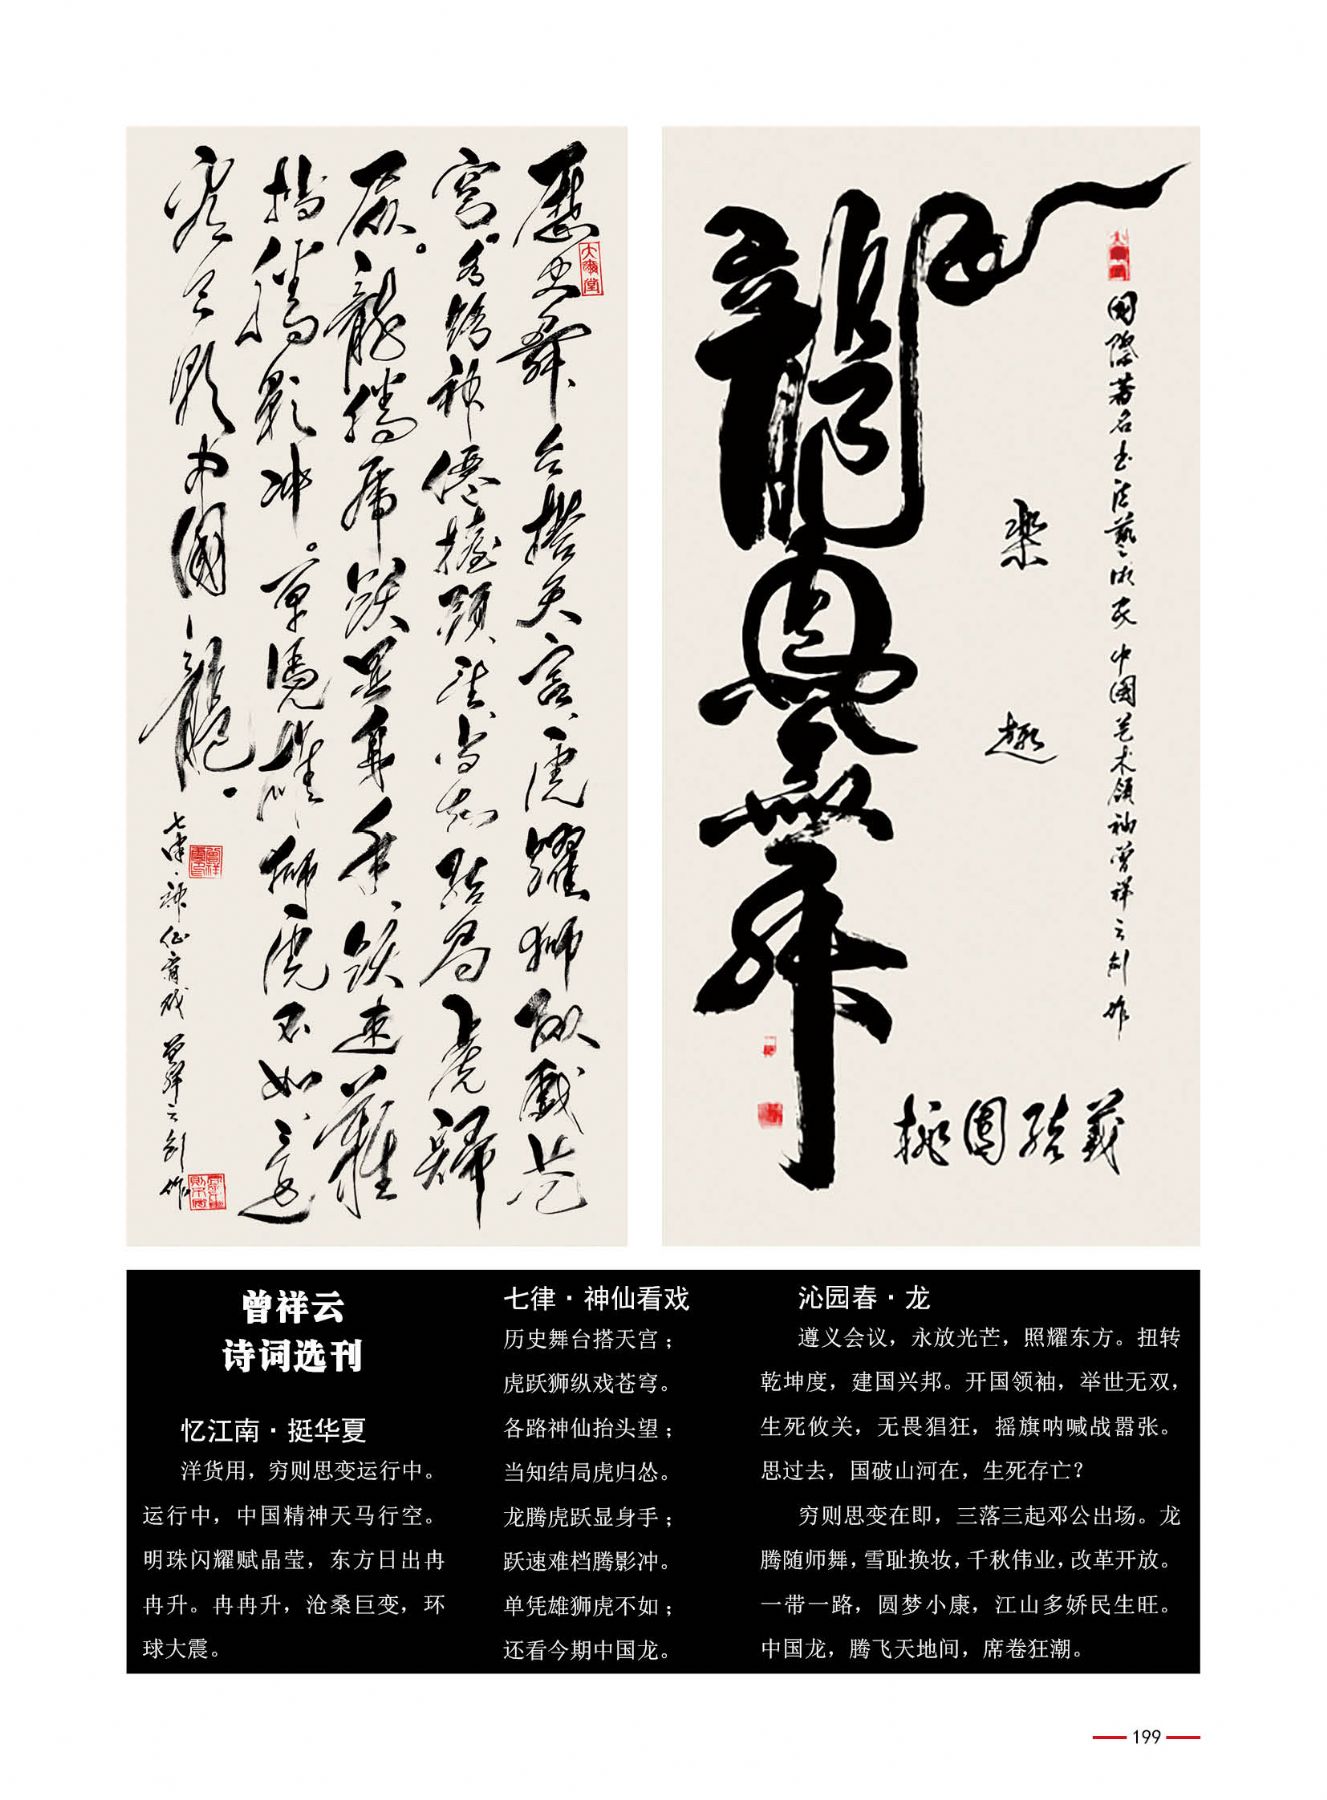 历史舞台搭天宫、虎耀狮纵戏苍
穹。各路神仙抬头望、当知结局虎归
龙腾虎跃显身手、跃速难
挡腾影冲。单凭雄狮虎不如、还
看今期中国龙。
七律·神仙看戏 曾祥云创作
大寿堂
龍鳳舞
国際著名书法藝术家 中國艺术领袖曾祥云创作
樂
趣
桃園結義
曾祥云
诗词选刊
忆江南·挺华夏
洋货用，穷则思变运行中。
运行中，中国精神天马行空。
明珠闪耀赋晶莹，东方日出冉
冉升。冉冉升，沧桑巨变，环
球大震。
七律·神仙看戏
历史舞台搭天宫；
虎跃狮纵戏苍穹。
各路神仙抬头望；
当知结局虎归怂。
龙腾虎跃显身手；
跃速难档腾影冲。
单凭雄狮虎不如；
还看今期中国龙。
沁园春·龙
遵义会议，永放光芒，照耀东方。扭转
乾坤度，建国兴邦。开国领袖，举世无双，
生死攸关，无畏猖狂，摇旗呐喊战嚣张。
思过去，国破山河在，生死存亡？
穷则思变在即，三落三起邓公出场。龙
腾随师舞，雪耻换妆，千秋伟业，改革开放。
一带一路，圆梦小康，江山多娇民生旺。
中国龙，腾飞天地间，席卷狂潮。
199